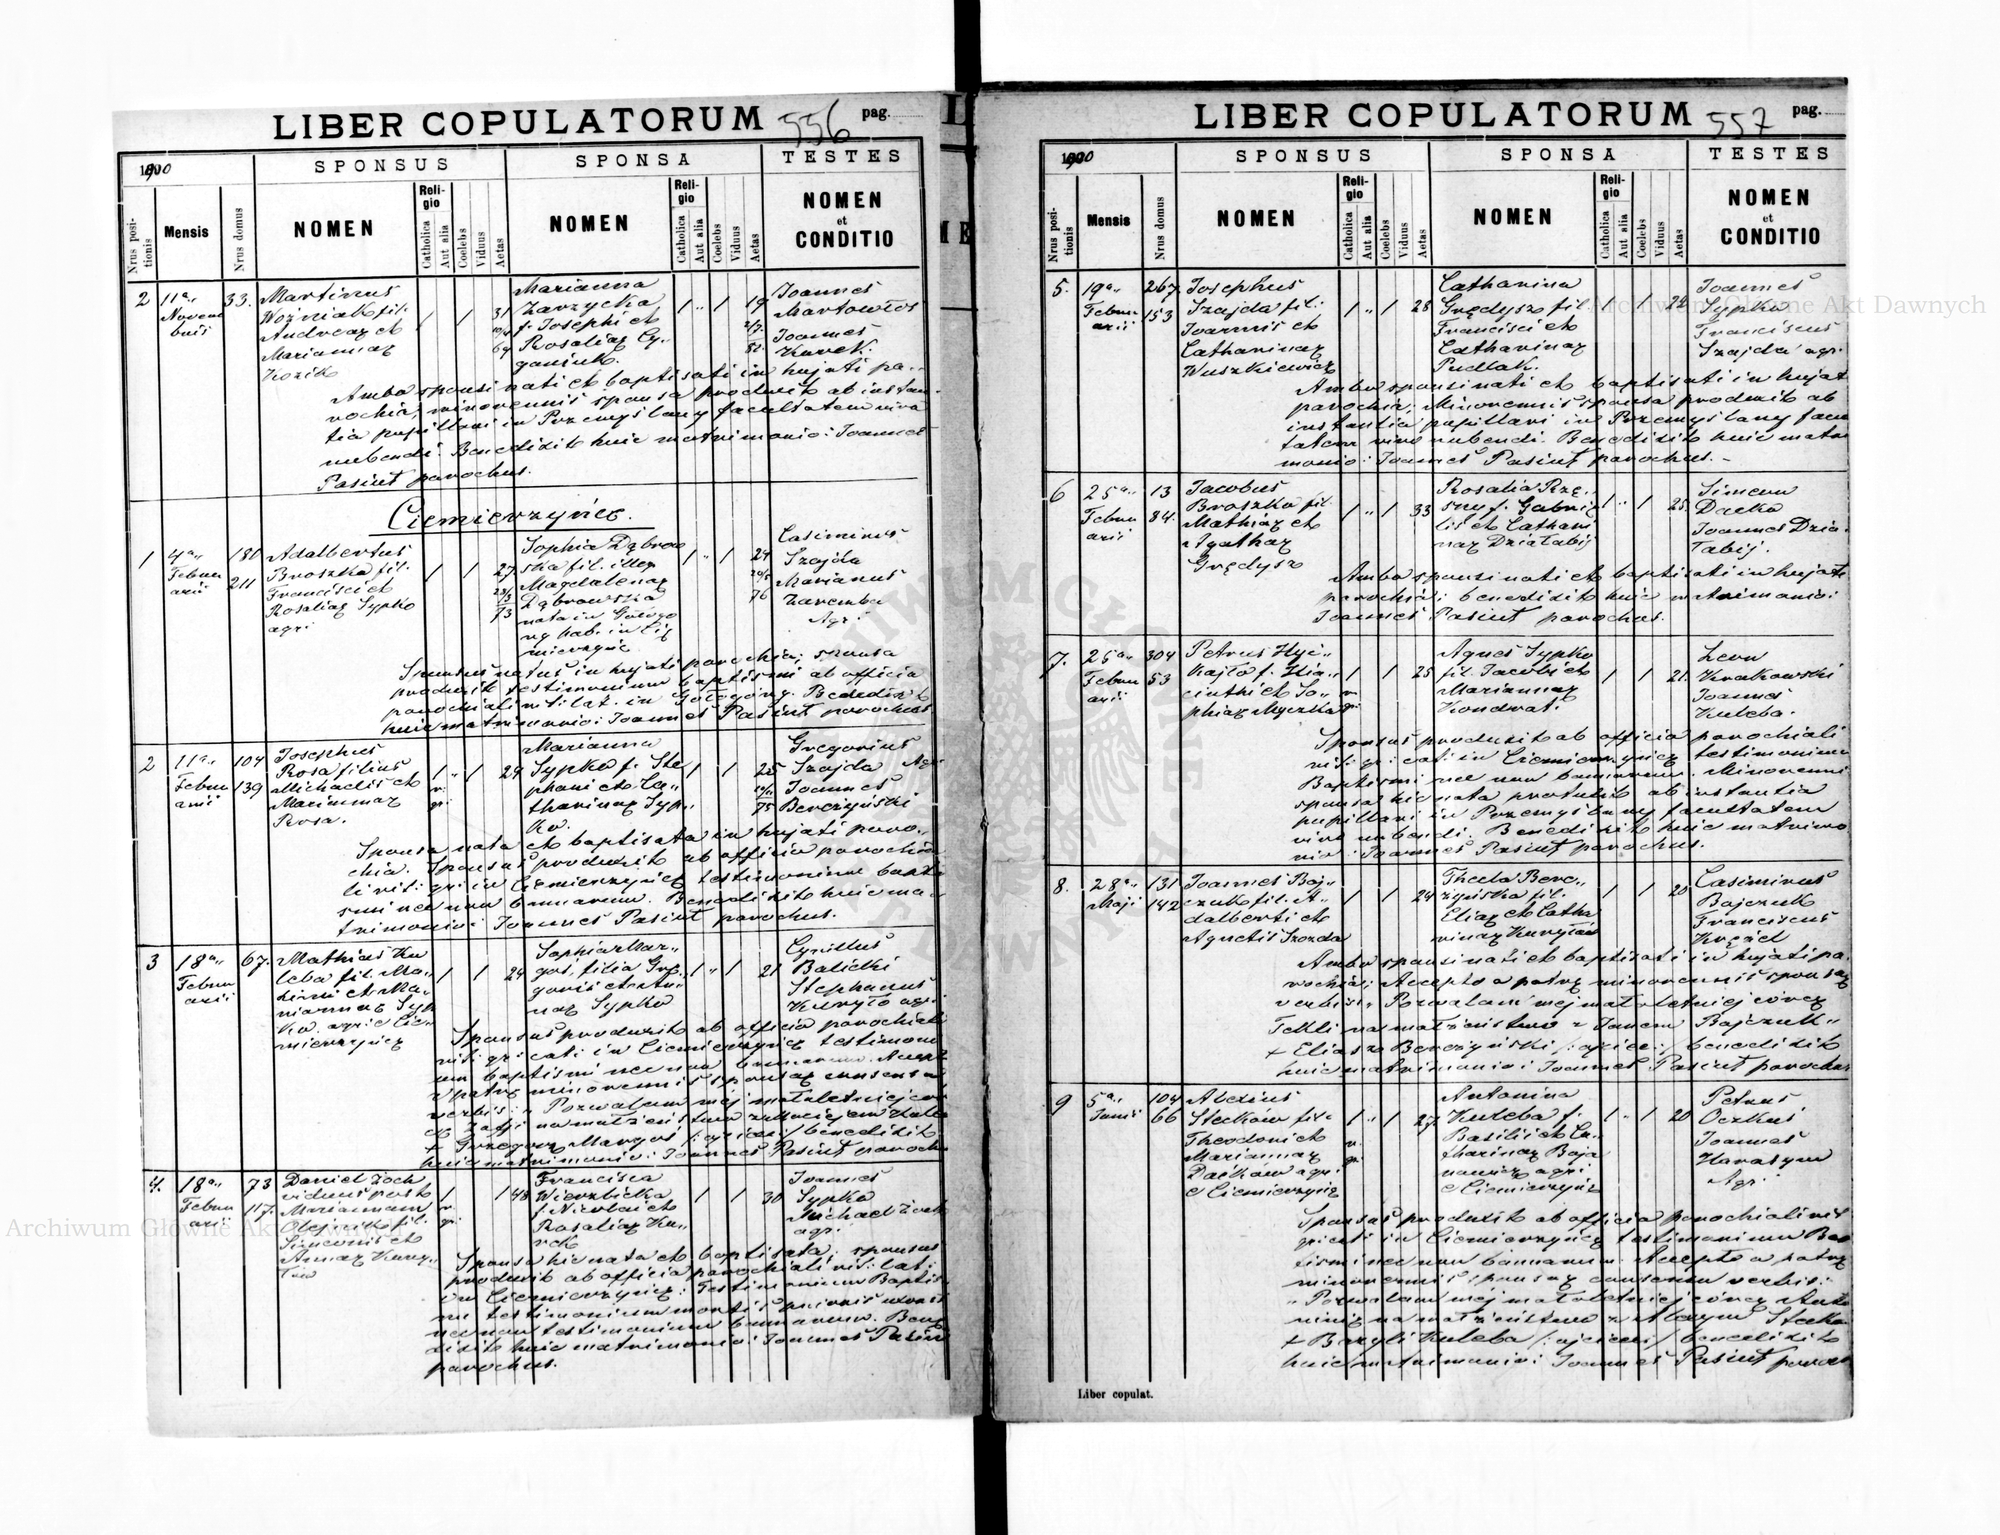 LIBER COPULATORUM 556 pag.
1900 SPONSUS SPONSA TESTES
Nrus positionis Mensis Nrus domus NOMEN Religio Catholica Aut alia Coelebs Viduus Aetas NOMEN Religio Catholica Aut alia Coelebs Viduus Aetas NOMEN et CONDITIO
2 11a Novem bris 33.
Martinus
Woźniak fil.
Andreae et
Mariannae
Kozik
31
Marianna
Zarzycka
f. Josephi et
Rosaliae Cy„
ganiuk.
19
Joannes
Martowłos
Joannes
Kurek.
Ambo sponsi nati et baptisati in hujati pa„
rochia, minorennis sponsa produxit ab instan„
tia pupillari in Przemyślany facultatem viro
nubendi. Benedixit huic matrimonio: Joannes
Pasiut parochus.
Ciemierzyńce.
1 4a„ Februarii 180 211
Adalbertus
Broszka fil.
Francisci et
Rosaliae Sypko
agri
27
Sophia Dąbrow
ska fil. illeg.
Magdalenae
Dąbrowska
nata in Gołogo
ry hab. in Cie
mierzyńce
24
Casimirus
Szajda
Marianus
Zaremba
Agr.
Sponsus natus in hujati parochia; sponsa
produxit testimonium baptismi ab officio
parochiali rit. lat. in Gołogóry. Benedixit
huic matrimonio: Joannes Pasiut parochus
2 11a„ Februarii 104 139
Josephus
Rosa filius
Michaelis et
Mariannae
Rosa.
29
Marianna
Sypko f. Ste
phani et Ca„
tharinae Syp„
ko.
25
Gregorius
Szajda Agr.
Joannes
Berezyński
Sponsa nata et baptisata in hujati paro„
chia. Sponsus produxit ab officio parochia
li rit. gr. in Ciemierzyńce testimonium bapti
smi nec non bannorum. Benedixit huic ma„
trimonio: Joannes Pasiut parochus.
3 18a„ Februarii 67.
Mathias Ku
leba fil. Ma„
niannae Syp
ko. agri e Cie„
mierzyńce
24
Sophia Mar„
goś, filia Gre„
gorii et An„
nae Sypko
21
Cyrillus
Balicki
Stephanus
Kuryło agr.
Sponsus produxit ab officio parochiali
rit. gr. cati in Ciemierzyńce testimoni
um baptismi nec non bannorum. Accep
verbis: „ Pozwalam mej małoletniej cór
+ Grzegorz Margoś /: ojciec :/ benedixit
huic matrimonio: Joannes Pasiut paroch
4. 18a„ Februarii 73 117.
Daniel Zoch
viduus post
Mariannam
Olejnik fil.
Simeonis et
Annae Kury„
48
Francisca
Wierzbicka
f. Nicolai et
Rosaliae Ku„
rek
30
Joannes
Sypko
Michael Zoch
agr.
Sponsa hic nata et baptisata; sponsus
produxit ab officio parochiali rit. lat.
in Ciemierzyńce: Testimonium Baptis
mi testimonium mortis prioris uxoris
nec non testimonium bannorum. Bene
dixit huic matrimonio: Joannes Pasiut
parochus.
LIBER COPULATORUM 557 pag.
1900 SPONSUS SPONSA TESTES
Nrus positionis Mensis Nrus domus NOMEN Religio Catholica Aut alia Coelebs Viduus Aetas NOMEN Religio Catholica Aut alia Coelebs Viduus Aetas NOMEN et CONDITIO
5. 19a„ Februarii 267. 153
Josephus
Szajda fil.
Joannis et
Catharinae
Wuszkiewicz
28
Catharina
Grędysz fil.
Francisci et
Catharinae
Pudlak.
Joannes
Sypko
Franciscus
Szajda agr.
Ambo sponsi nati et baptisati in hujat
parochia; Minorennis sponsa produxit ab
instantia pupillari in Przemyślany facul
tatem viro nubendi. Benedixit huic matri
monio: Joannes Pasiut parochus. –
6 25a„ Februarii 13 84.
Jacobus
Broszka fil.
Mathiae et
Agathae
Grędysz
33
Rosalia Rze„
sny f. Gabrie
lis et Cathari
nae Działabij
25.
Simeon
Dacko
Joannes Dzia„
łabij.
Ambo sponsi nati et baptisati in hujati
parochia; benedixit huic matrimonio:
Joannes Pasiut parochus.
7. 25a„ Februarii 304 53
Petrus Hyc„
kajło f. Hia„
cinthi et So„
phiae Myczka
25
Agnes Sypko
fil. Jacobi et
Mariannae
Kondrat.
21.
Leon
Krakowski
Joannes
Kuleba.
Sponsus produxit ab officio parochiali
rit. gr. cati in Ciemierzyńce testimonium
Baptismi nec non bannorum. Minorenni
sponsa hic nata protulit ab instantia
pupillari in Przemyślany facultatem
viro nubendi. Benedixit huic matrimo
nio: Joannes Pasiut parochus.
8. 28a„ Maji 131 142
Joannes Baj„
czuk fil. A„
dalberti et
Agnetis Szozda
24
Thecla Bere„
żyńska fil.
Eliae et Catha
rinae Kuryłów
20
Casimirus
Bajczuk
Franciscus
Krężel
Ambo sponsi nati et baptisati in hujati pa„
rochia; Accepto a patre minorennis sponsae
verbis: „ Pozwalam mej małoletniej córce
Tekli na małżeństwo z Janem Bajczuk„
+ Eliasz Bereżyński /: ojciec :/ benedixit
huic matrimonio: Joannes Pasiut parochus
9 5a„ Junii 104 66
Alexius
Steckow fil.
Theodori et
Mariannae
Daćków agr.
e Ciemierzyńce
27.
Antonina
Kuleba f.
Basilii et Ca„
tharinae Boja
nowicz agri
e Ciemierzyńce
20
Petrus
Oczkuś
Joannes
Harasym
Agr.
Sponsus produxit ab officio parochiali rit
gr. cati in Ciemierzyńce testimonium Bap
tismi nec non bannorum. Accepto a patre
minorennis sponsae consensu verbis:
„ Pozwalam mej małoletniej córce Anto
ninie na małżeństwo z Alexym Stecko
+ Bazyli Kuleba /: ojciec :/ benedixit
huic matrimonio: Joannes Pasiut paroch
Liber copulat.
Archiwum Główne Akt Dawnych
Archiwum Główne Akt Dawnych